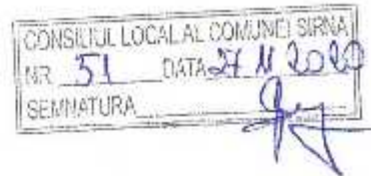 CONSILIUL LOCAL AL COMUNEI SIRNA
NR 51 DATA 27 11 2020
SEMNATURA